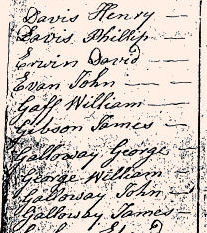 Davis Henry —
Davis Phillip —
Erwin David —
Evan John —
Gaff William —
Gibson James —
Galloway George —
George William
Galloway John —
Galloway James